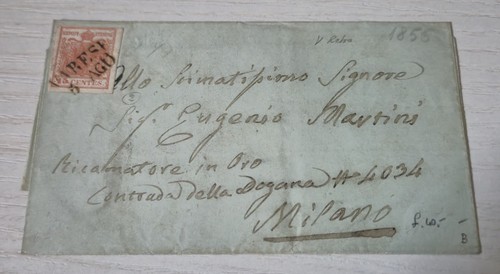 V Retro
1855
VARESE
AGO
15 CENTES.
Allo Stimatissimo Signore
Sig.r Eugenio Martini
Ricamatore in Oro
Contrada della Dogana No 4034
Milano
B